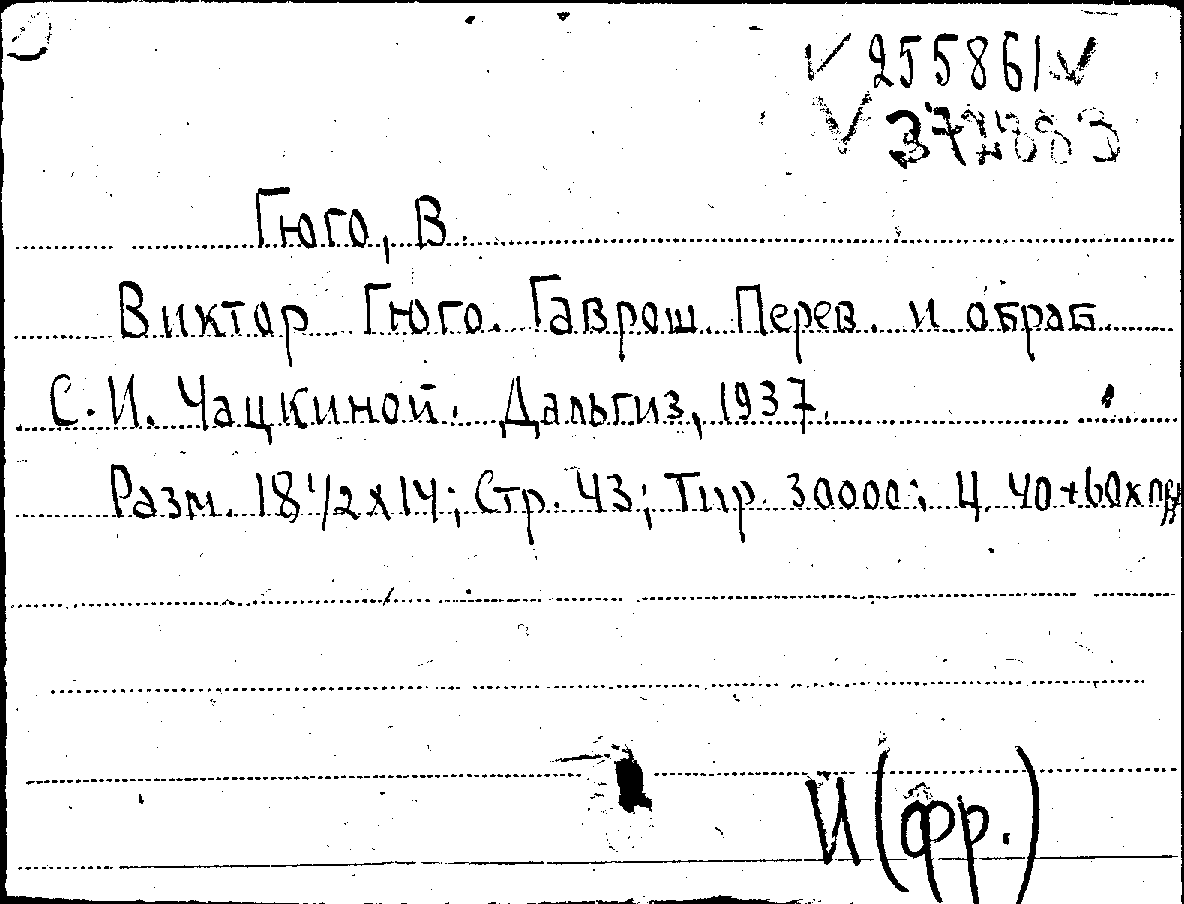 ✓ 255861 ✓
✓ 372883
Гюго, В.
Виктор Гюго. Гаврош. Перев. и обраб.
С. И. Чацкиной. Дальгиз, 1937.
Разм. 18 1/2 х 14; Стр. 43; Тир. 30000; Ц. 40+60к
И (фр.)